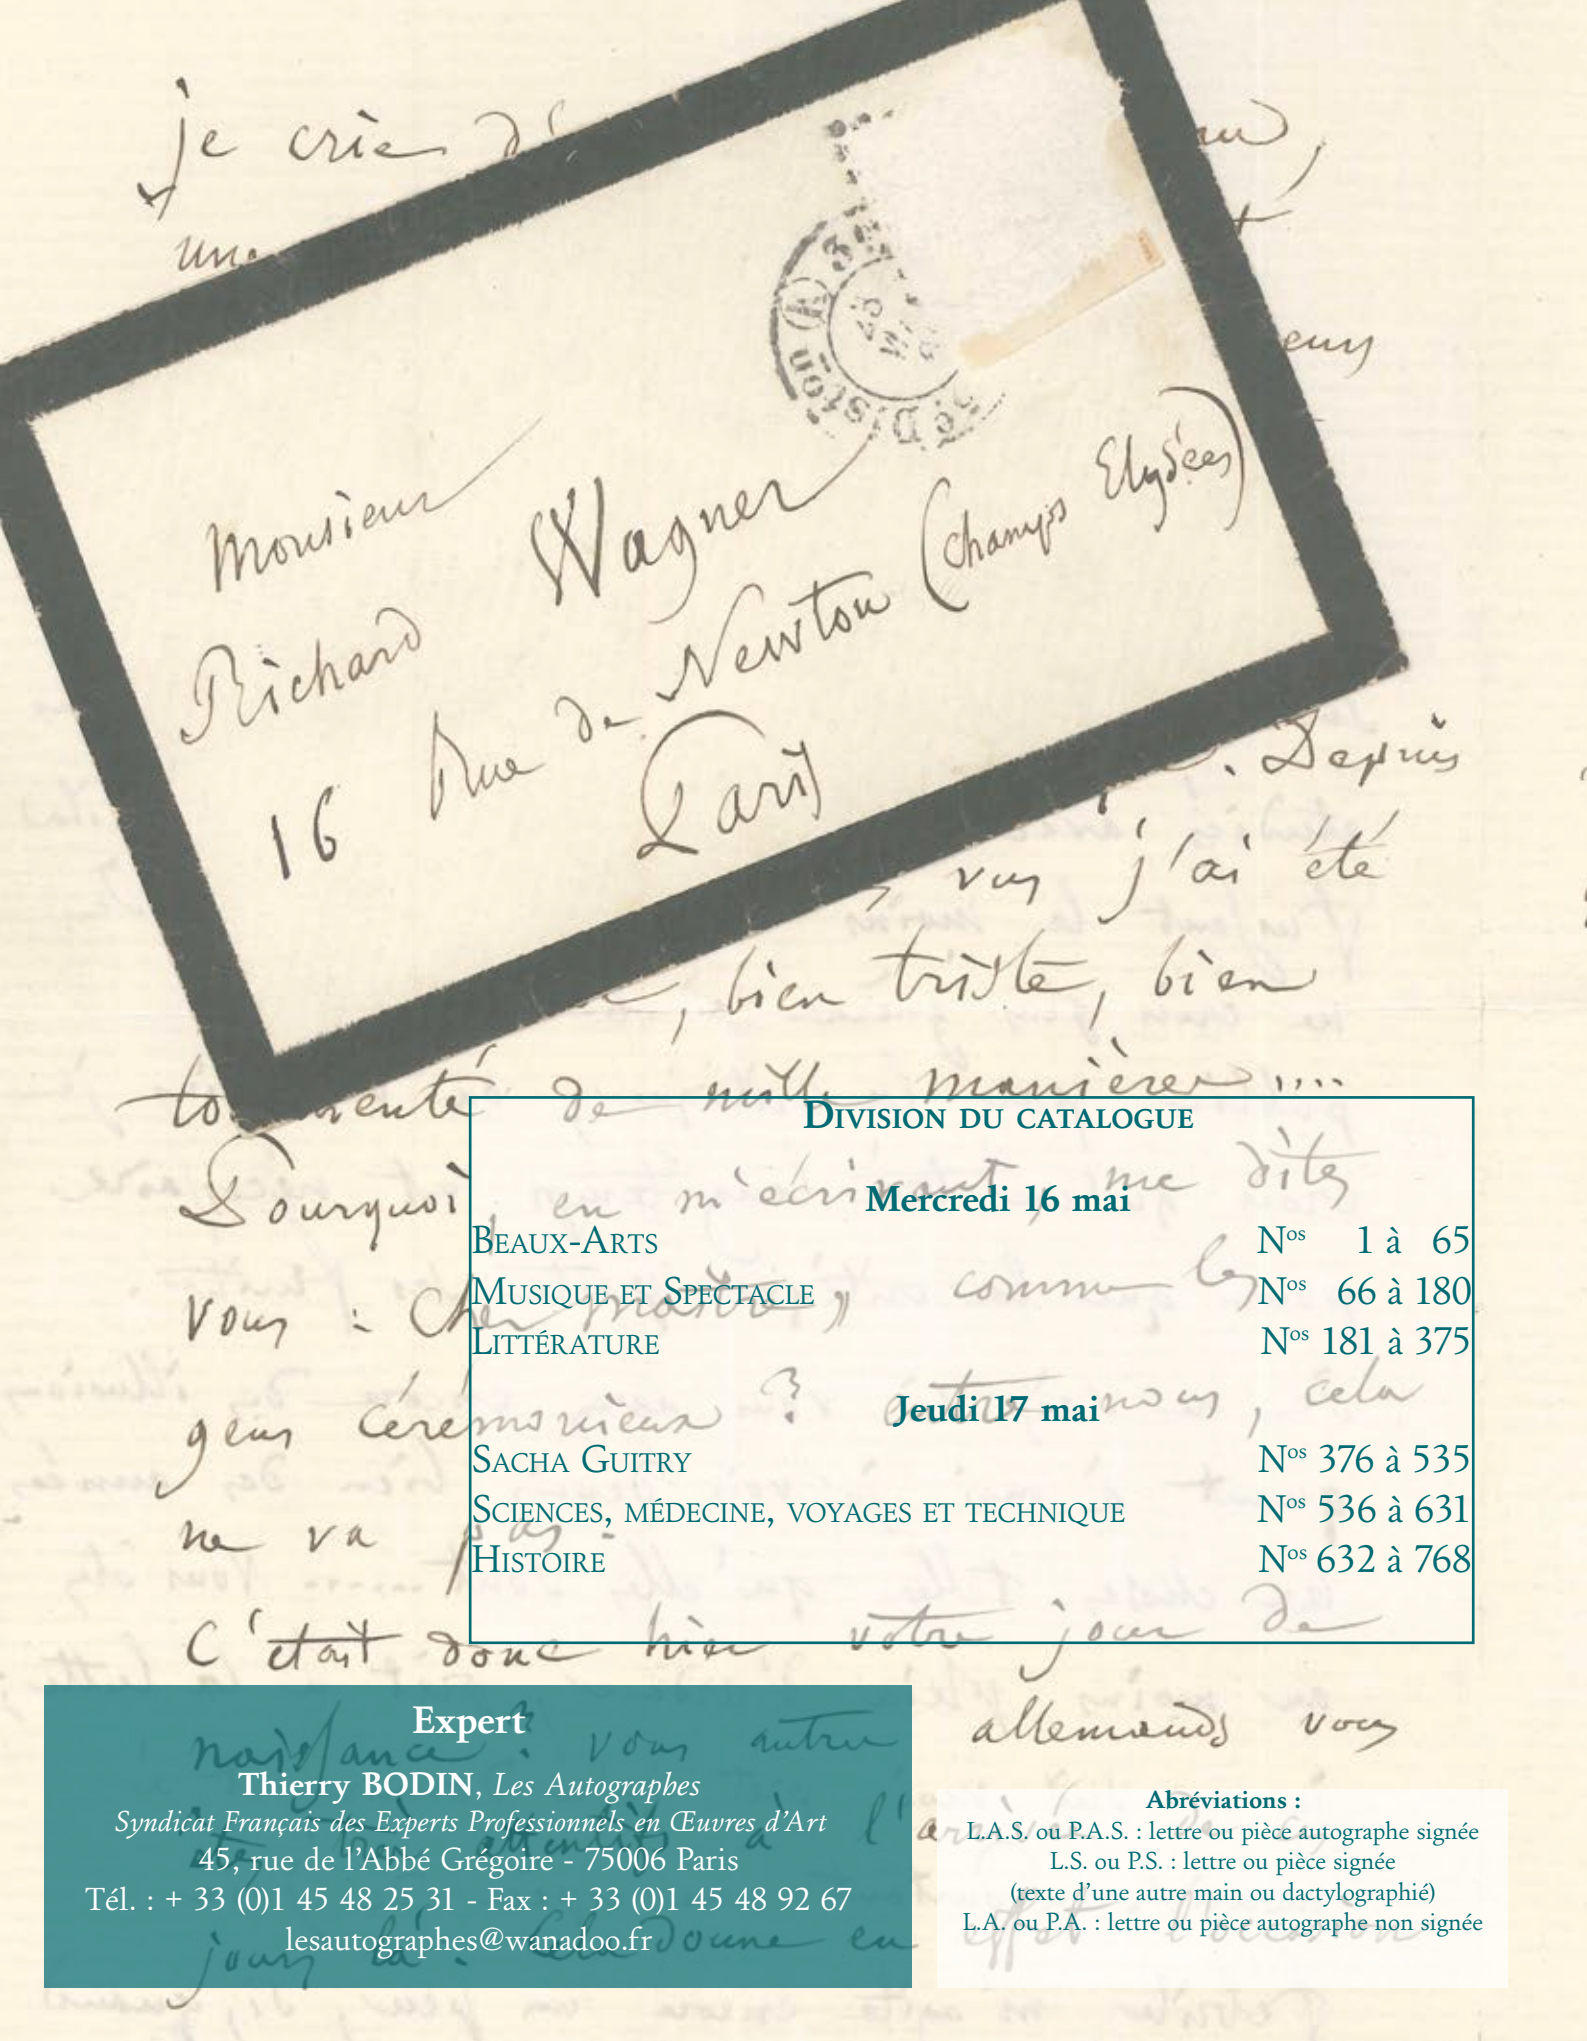 je crie
une
Monsieur
Richard Wagner
16 Rue de Newton (Champs Elysées)
Paris
. Depuis
, vus j'ai été
, bien triste, bien
de mille manières....
Pourquoi, en m'écrivant, me dites
vous : Cher maître, comme les
gens cérémonieux ? entre nous, cela
ne va pas.
C'était donc hier votre jour de
naissance ? vous autres allemands vous
à l'arrivée de ce
jour là. Cela donne en effet l'occasion
DIVISION DU CATALOGUE
Mercredi 16 mai
BEAUX-ARTS Nos 1 à 65
MUSIQUE ET SPECTACLE Nos 66 à 180
LITTÉRATURE Nos 181 à 375
Jeudi 17 mai
SACHA GUITRY Nos 376 à 535
SCIENCES, MÉDECINE, VOYAGES ET TECHNIQUE Nos 536 à 631
HISTOIRE Nos 632 à 768
Expert
Thierry BODIN, Les Autographes
Syndicat Français des Experts Professionnels en Œuvres d'Art
45, rue de l'Abbé Grégoire - 75006 Paris
Tél. : + 33 (0)1 45 48 25 31 - Fax : + 33 (0)1 45 48 92 67
lesautographes@wanadoo.fr
Abréviations :
L.A.S. ou P.A.S. : lettre ou pièce autographe signée
L.S. ou P.S. : lettre ou pièce signée
(texte d'une autre main ou dactylographié)
L.A. ou P.A. : lettre ou pièce autographe non signée